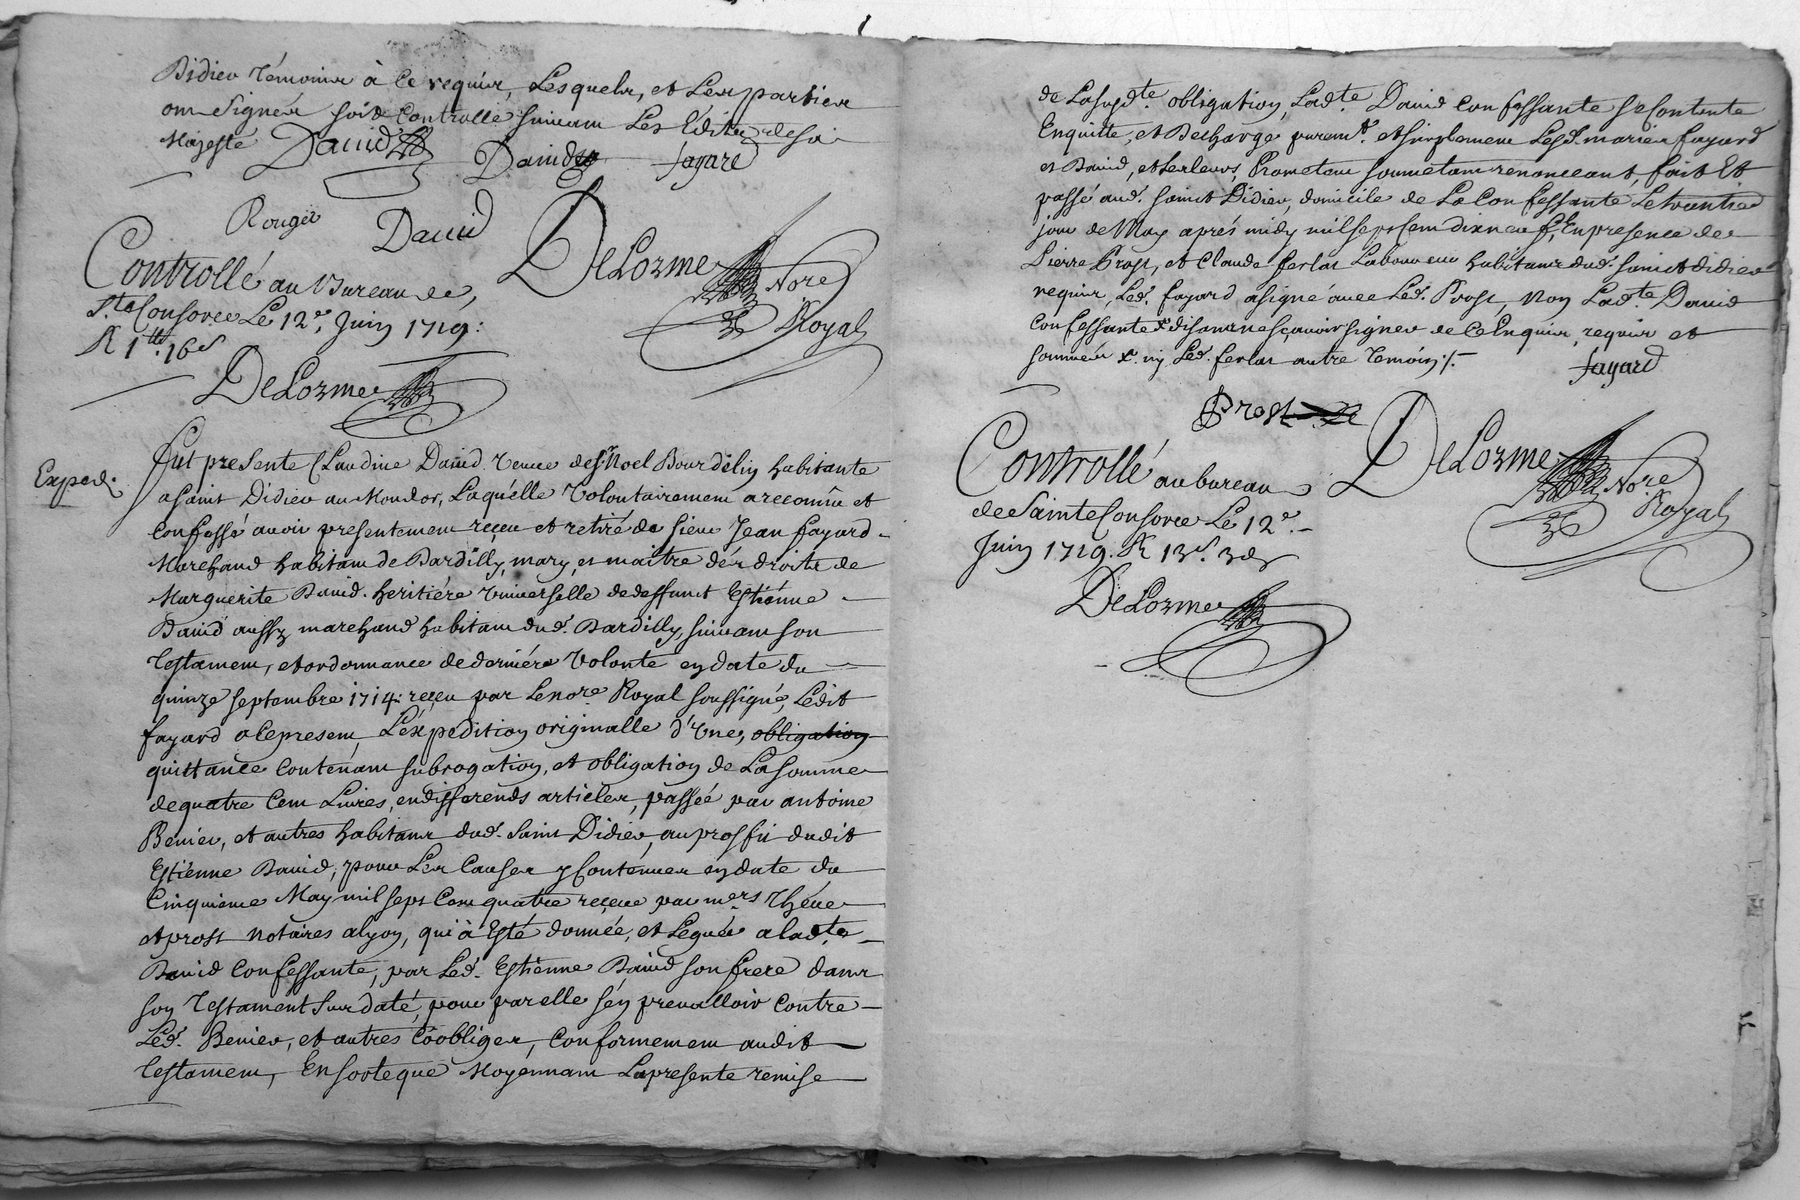 Didier témoins à ce requis, Lesquels, et Les parties
ont signés soit Controllé suivant Les Edits de sa
Majesté David David fayard
Rougié David DeLorme No.re Royal
Controllé au Bureau de
S.te Consorce Le 12.e Juin 1719:
R 1.tt 16.s
DeLorme
Exped.
fut presente Claudine David veuve de S.r Noel Bourdelin habitante
a saint Didier au Mondor, Laquelle volontairement a reconnu et
Confessé avoir presentement reçeu et retiré de sieur Jean fayard
Marchand habitant de Dardilly, mary, et maitre des droits de
Marguerite David heritiére universelle de deffunct Estiénne
David aussy marchand habitant dud. Dardilly, suivant son
testament, et ordonnance de derniére volonté en date du
quinze septembre 1714: reçeu par Le no.re Royal soussigné, Ledit
fayard a Ce present, L'éxpedition originalle d'une, obligation
quittance contenant subrogation, et obligation de La somme
de quatre Cent Livres, en differends articles, passée par antoine
Benier, et autres habitants dud. saint Didier, au proffit dudit
Estiénne David, pour Les causes y contenues en date du
Cinquiéme May mil sept Cent quatre reçeue par m.ers Théue
et prost notaires a lyon, qui à Esté donnée, et Leguée a lad.te
David Confessante, par Led. Estiénne David son frere dans
son testament sus daté, pour par elle s'en prevalloir contre
Led. Benier, et autres Coobligés, Conformement audit
testament, En sorte que Moyennant La presente remise
de La susd.te obligation, Lad.te David Confessante se Contente
Enquitte, et Decharge purem.t et simplement Lesd. mariés fayard
et David, et Les Leurs, Promettant soumettant renonceant, fait Et
passé aud. saint Didier, domicile de La Confessante Le trentiéme
jour de May aprés midy mil sept Cent dix neuf, En presence de
Pierre Prost, et Claude ferlat Laboureurs habitants dud. saint didier
requis, Led. fayard a signé avec Led. Prost, non Lad.te David
Confessante disant ne sçavoir signer de Ce Enquise, requise et
sommée ny Led. ferlat autre temoin :/.
fayard
Prost DeLorme No.re Royal
Controllé au bureau
de Sainte Consorce Le 12.e
Juin 1719. R 13.s 3.d
DeLorme